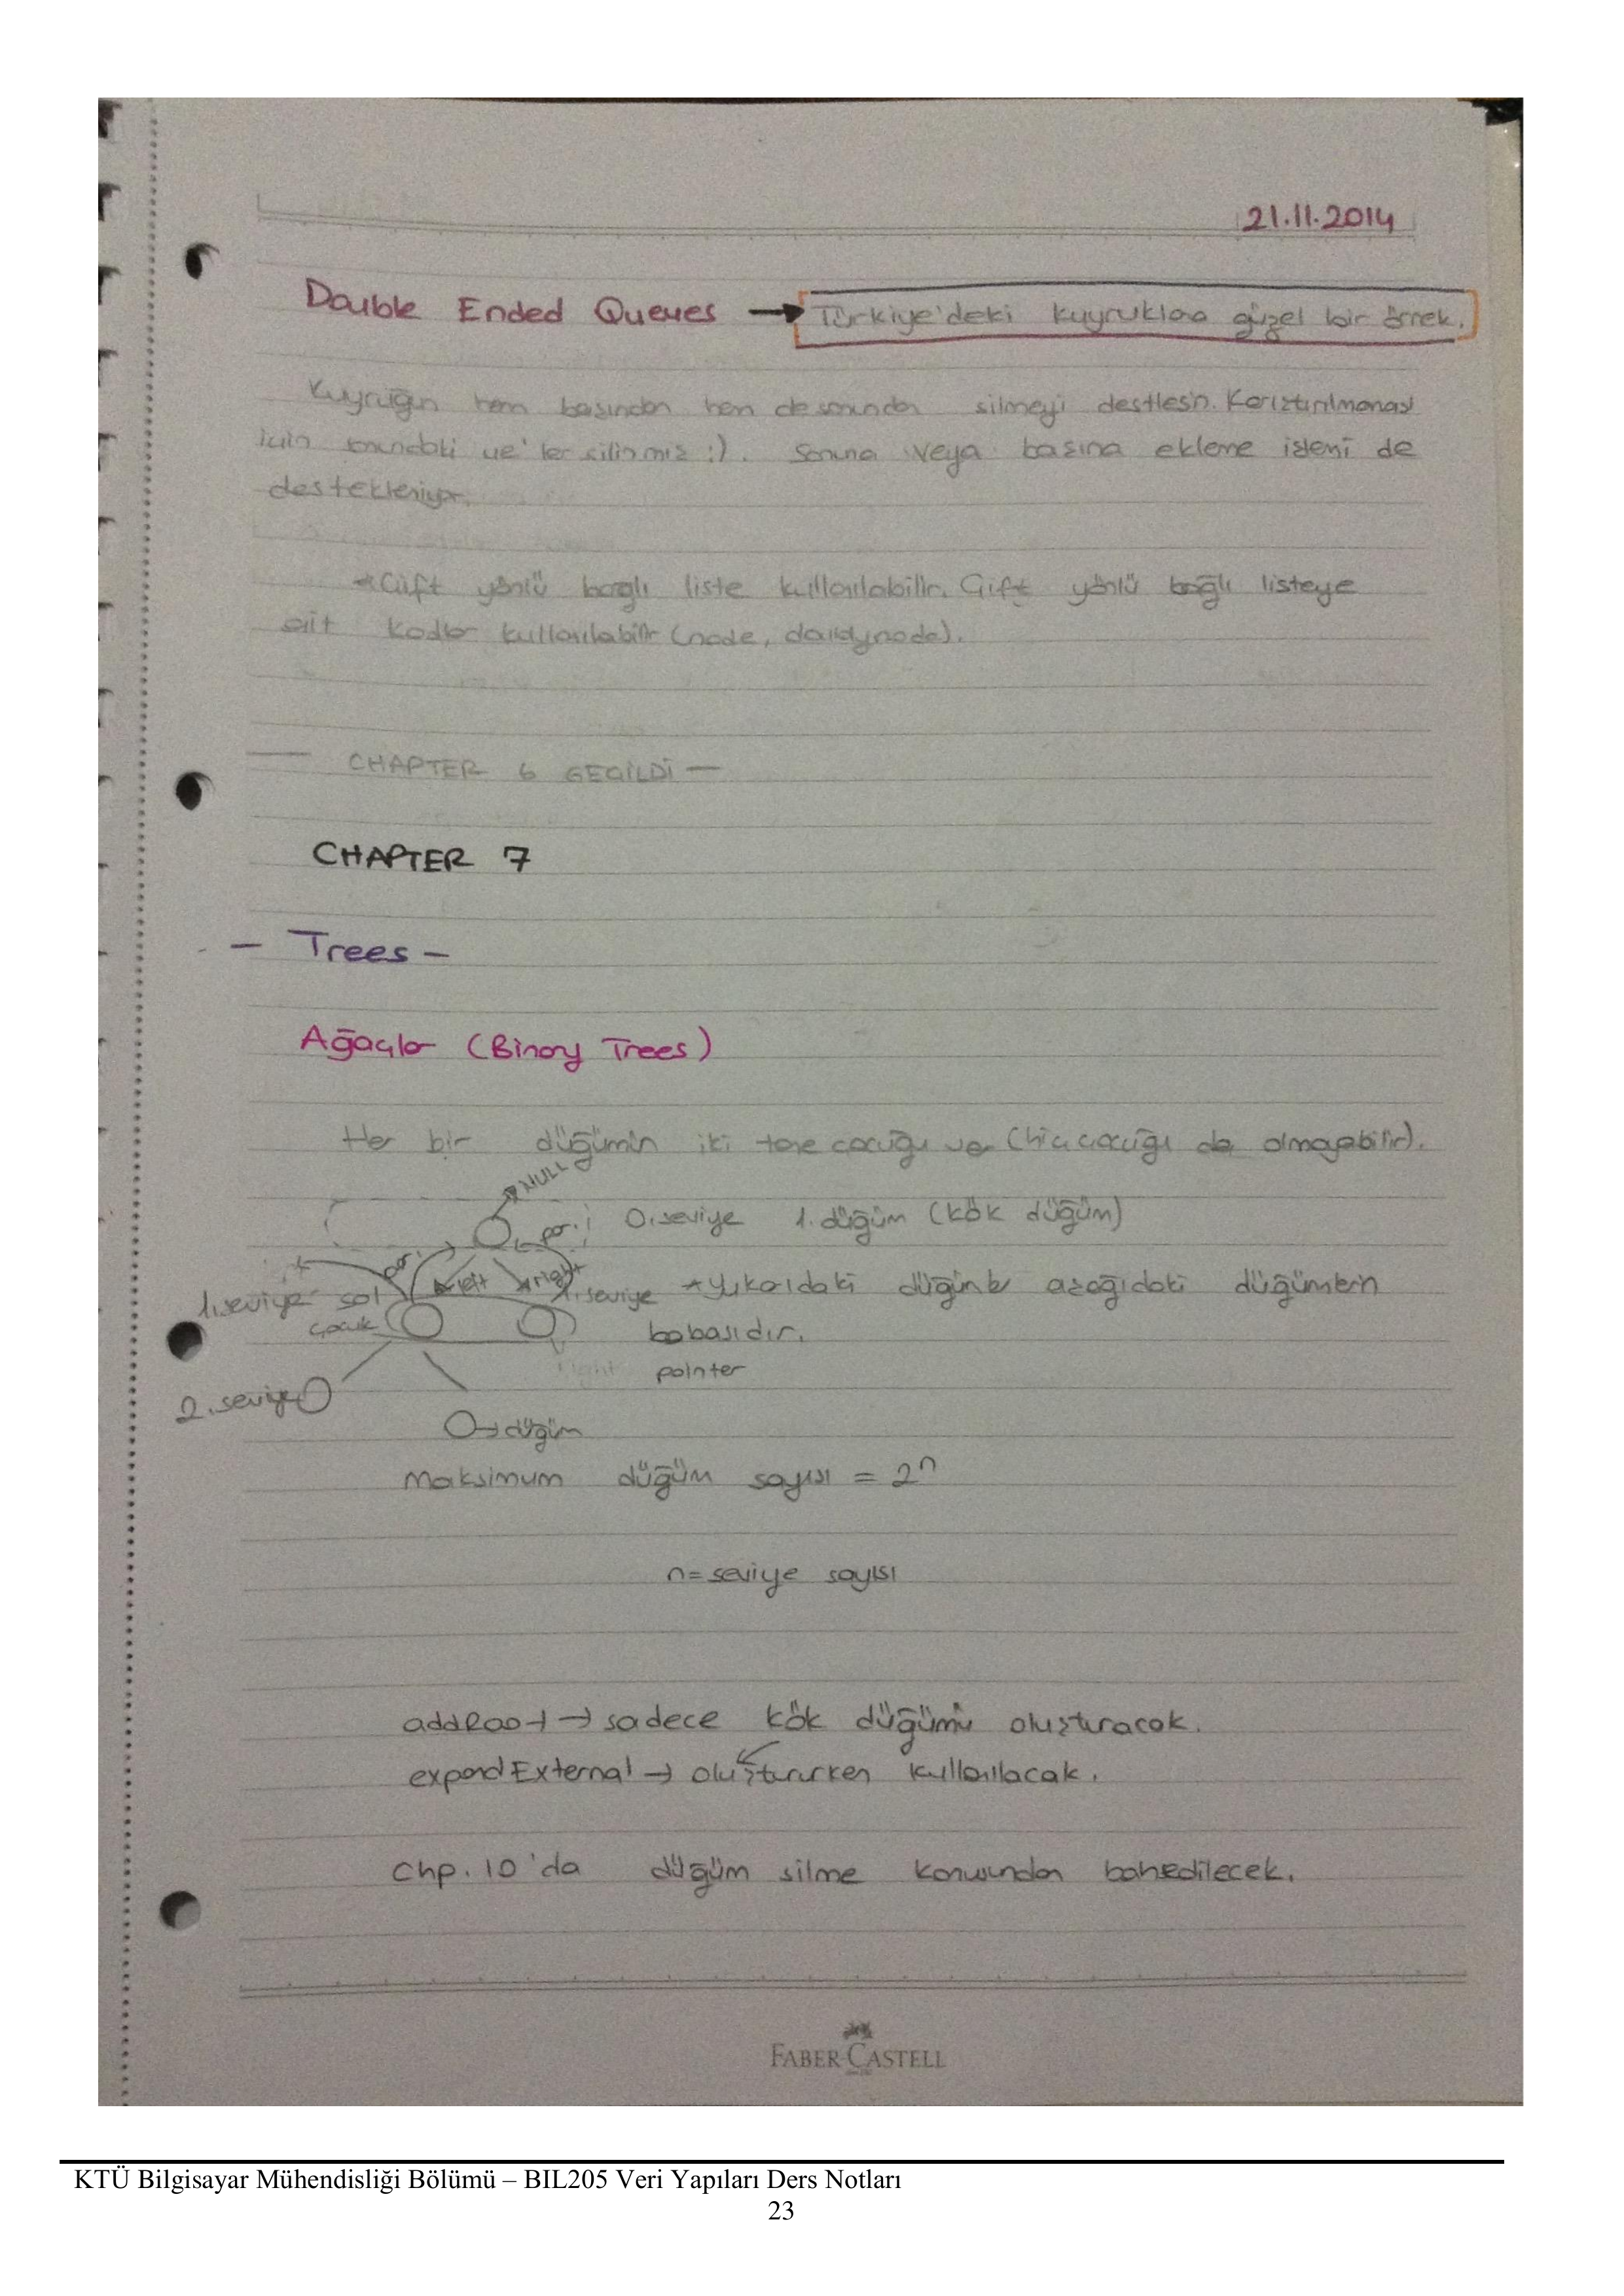 21.11.2014
Double Ended Queues → Türkiye'deki kuyruklara güzel bir örnek.
Kuyruğun hem başından hem de sonundan silmeyi destlesin. Karıştırılmaması
için sonundaki ue'ler silinmiş :). Sonuna veya başına ekleme işlemi de
destekleniyor.
*Çift yönlü bağlı liste kullanılabilir. Çift yönlü bağlı listeye
ait kodlar kullanılabilir (node, daildynode).
— CHAPTER 6 GEÇİLDİ —
CHAPTER 7
- Trees -
Ağaçlar (Binary Trees)
Her bir düğümin iki tane çocuğu var (hiç çocuğu da olmayabilir).
NULL
par. 0.seviye 1.düğüm (kök düğüm)
par. left right
1.seviye sol 1.seviye *Yukarıdaki düğümler aşağıdaki düğümlerin
çocuk babasıdır.
right pointer
2.seviye
→düğüm
Maksimum düğüm sayısı = 2ⁿ
n=seviye sayısı
addRoot → sadece kök düğümü oluşturacak.
expandExternal → oluştururken kullanılacak.
Chp. 10'da düğüm silme konusundan bahsedilecek.
FABER-CASTELL
KTÜ Bilgisayar Mühendisliği Bölümü – BIL205 Veri Yapıları Ders Notları
23